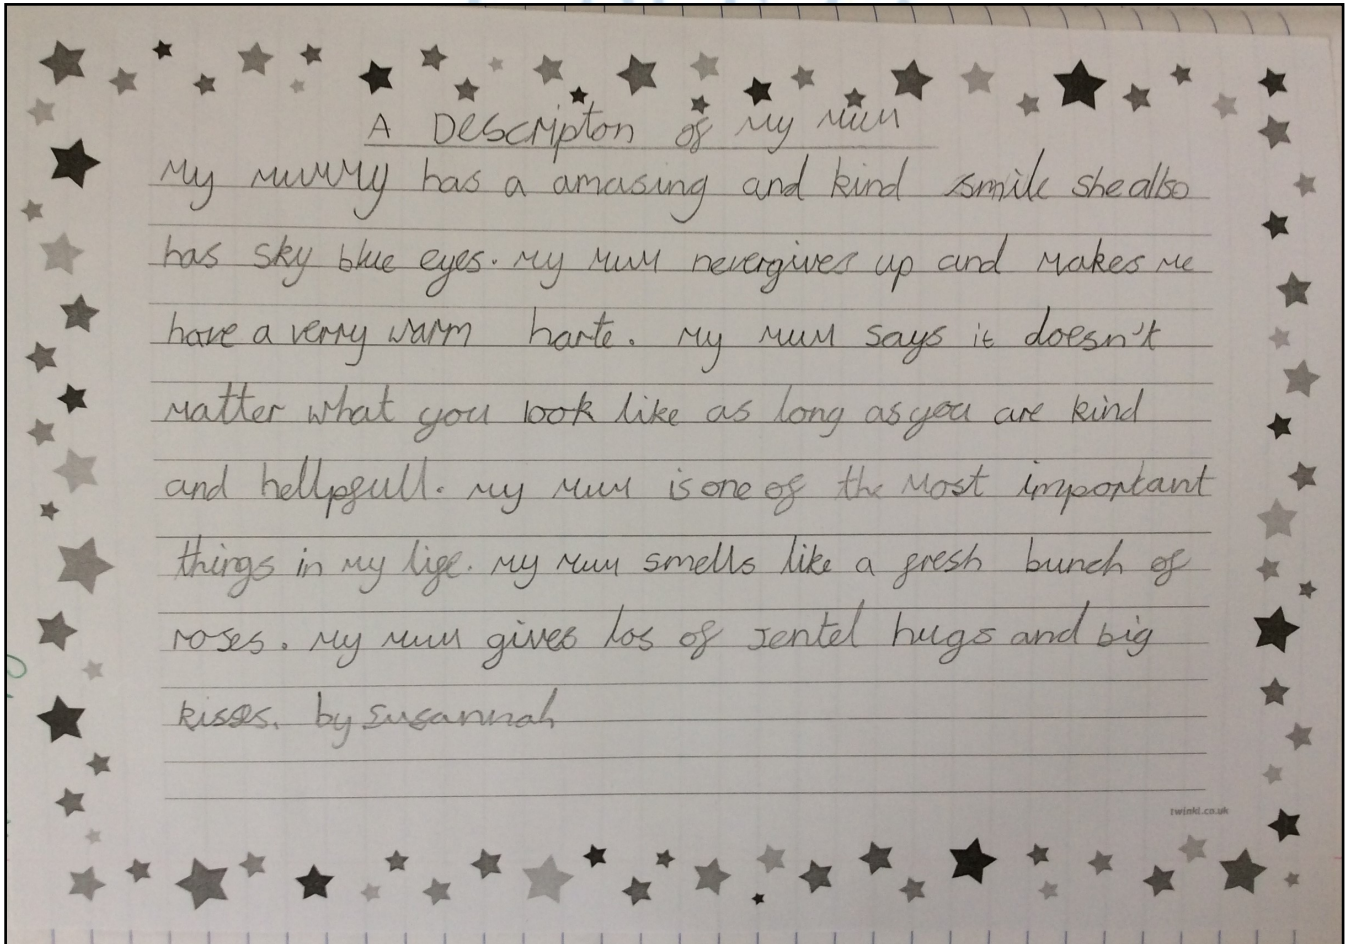 A Descripton of My Mum
My mummy has a amasing and kind smile she also
has sky blue eyes. My Mum never gives up and makes me
have a verry warm harte. My mum says it doesn't
matter what you look like as long as you are kind
and hellpfull. My Mum is one of the Most important
things in my life. My Mum smells like a fresh bunch of
roses. My mum gives los of jentel hugs and big
kisses. by Susannah
twinkl.co.uk